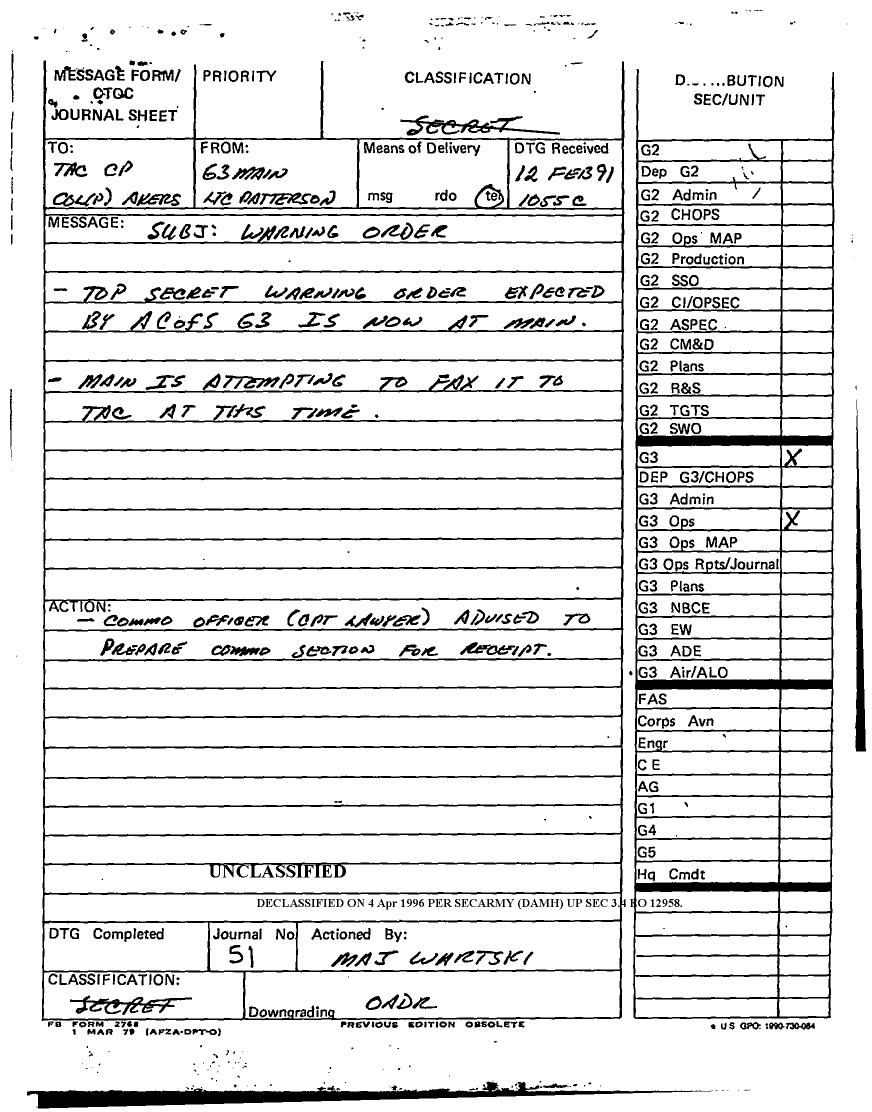 MESSAGE FORM/
CTOC
JOURNAL SHEET
PRIORITY
CLASSIFICATION
SECRET
TO:
TAC CP
COL(P) AKERS
FROM:
G3 MAIN
LTC PATTERSON
Means of Delivery
msg rdo tel
DTG Received
12 FEB 91
1055 C
MESSAGE: SUBJ: WARNING ORDER
- TOP SECRET WARNING ORDER EXPECTED
BY ACofS G3 IS NOW AT MAIN.
- MAIN IS ATTEMPTING TO FAX IT TO
TAC AT THIS TIME.
ACTION:
- COMMO OFFICER (CPT LAWYER) ADVISED TO
PREPARE COMMO SECTION FOR RECEIPT.
UNCLASSIFIED
DECLASSIFIED ON 4 Apr 1996 PER SECARMY (DAMH) UP SEC 3.4 EO 12958.
DTG Completed
Journal No
51
Actioned By:
MAJ WARTSKI
CLASSIFICATION:
SECRET
Downgrading OADR
FB FORM 2768
1 MAR 79 (AFZA-DPT-O)
PREVIOUS EDITION OBSOLETE
BUTION
SEC/UNIT
G2
Dep G2
G2 Admin
G2 CHOPS
G2 Ops MAP
G2 Production
G2 SSO
G2 CI/OPSEC
G2 ASPEC
G2 CM&D
G2 Plans
G2 R&S
G2 TGTS
G2 SWO
G3 X
DEP G3/CHOPS
G3 Admin
G3 Ops X
G3 Ops MAP
G3 Ops Rpts/Journal
G3 Plans
G3 NBCE
G3 EW
G3 ADE
G3 Air/ALO
FAS
Corps Avn
Engr
C E
AG
G1
G4
G5
Hq Cmdt
* U S GPO: 1990-730-084